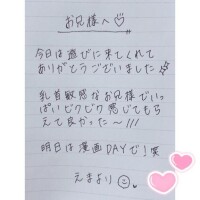 お兄様へ♡
今日は遊びに来てくれて
ありがとうございました☆
乳首敏感なお兄様でいっ
ぱいビクビク感じてもら
えて良かった〜///
明日は漫画DAYで!笑
えまより